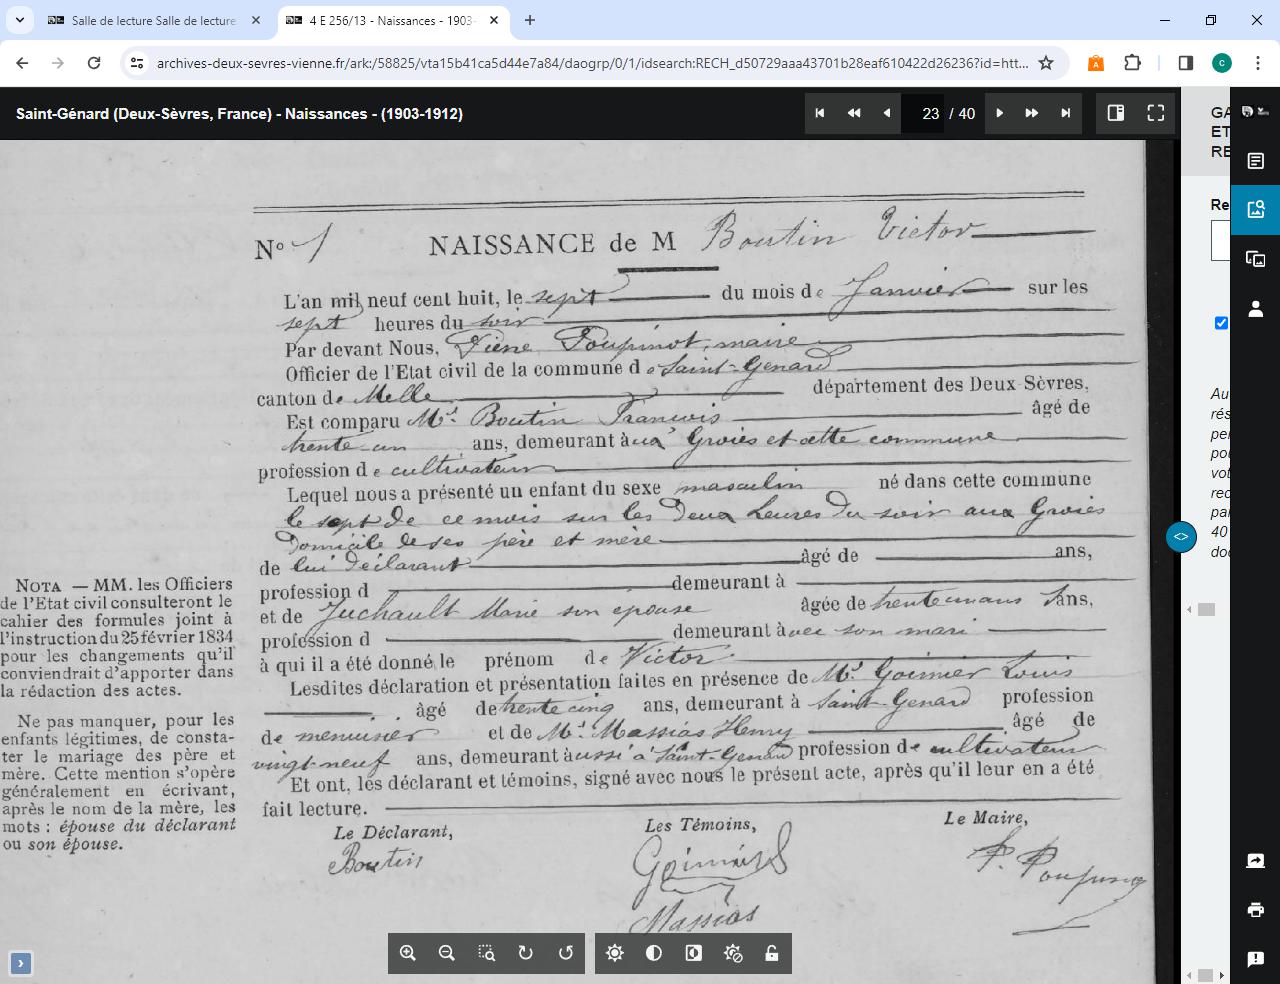 Salle de lecture Salle de lecture
4 E 256/13 - Naissances - 1903-
archives-deux-sevres-vienne.fr/ark:/58825/vta15b41ca5d44e7a84/daogrp/0/1/idsearch:RECH_d50729aaa43701b28eaf610422d26236?id=htt...
c
Saint-Génard (Deux-Sèvres, France) - Naissances - (1903-1912)
23 / 40
GA
ET
RE
Re
Au
rés
per
pou
vot
rec
par
40
doc
N° 1 NAISSANCE de M Boutin Victor
L'an mil neuf cent huit, le sept du mois de Janvier sur les
sept heures du soir
Par devant Nous, Pierre Poupinot, maire
Officier de l'Etat civil de la commune de Saint-Genard
canton de Melle département des Deux-Sèvres,
Est comparu Mr. Boutin Francois âgé de
trente-un ans, demeurant à aux Groies et cette commune
profession de cultivateur
Lequel nous a présenté un enfant du sexe masculin né dans cette commune
le sept de ce mois sur les deux heures du soir aux Groies
domicile de ses père et mère
de lui déclarant âgé de ans,
profession d demeurant à
et de Juchault Marie son épouse âgée de trente ans,
profession d demeurant avec son mari
à qui il a été donné le prénom de Victor
Lesdites déclaration et présentation faites en présence de Mr. Goimier Louis
âgé de trente cinq ans, demeurant à Saint-Genard profession
de menuisier et de Mr. Massias Henry âgé de
vingt-neuf ans, demeurant aussi à Saint-Genard profession de cultivateur
Et ont, les déclarant et témoins, signé avec nous le présent acte, après qu'il leur en a été
fait lecture.
Le Déclarant, Les Témoins, Le Maire,
Boutin
Massias
P. Poupinot
NOTA — MM. les Officiers
de l'Etat civil consulteront le
cahier des formules joint à
l'instruction du 25 février 1834
pour les changements qu'il
conviendrait d'apporter dans
la rédaction des actes.
Ne pas manquer, pour les
enfants légitimes, de consta-
ter le mariage des père et
mère. Cette mention s'opère
généralement en écrivant,
après le nom de la mère, les
mots : épouse du déclarant
ou son épouse.